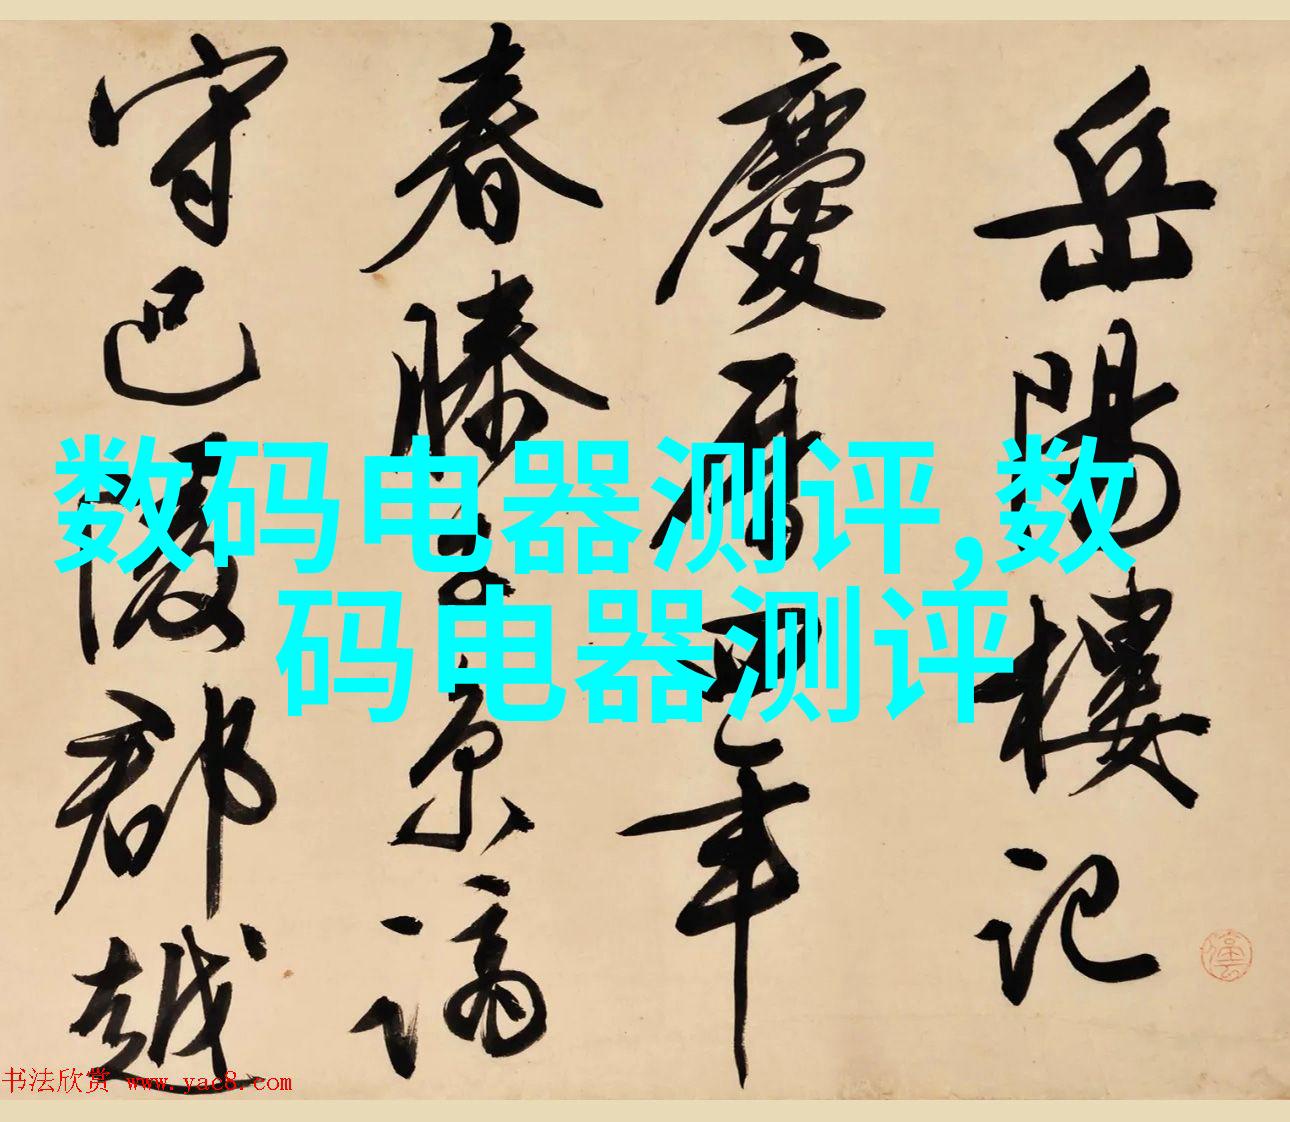 岳陽樓記
慶曆四年
春滕子京謫
守巴陵郡越
数码电器测评,数
码电器测评
书法欣赏 www.yac8.com